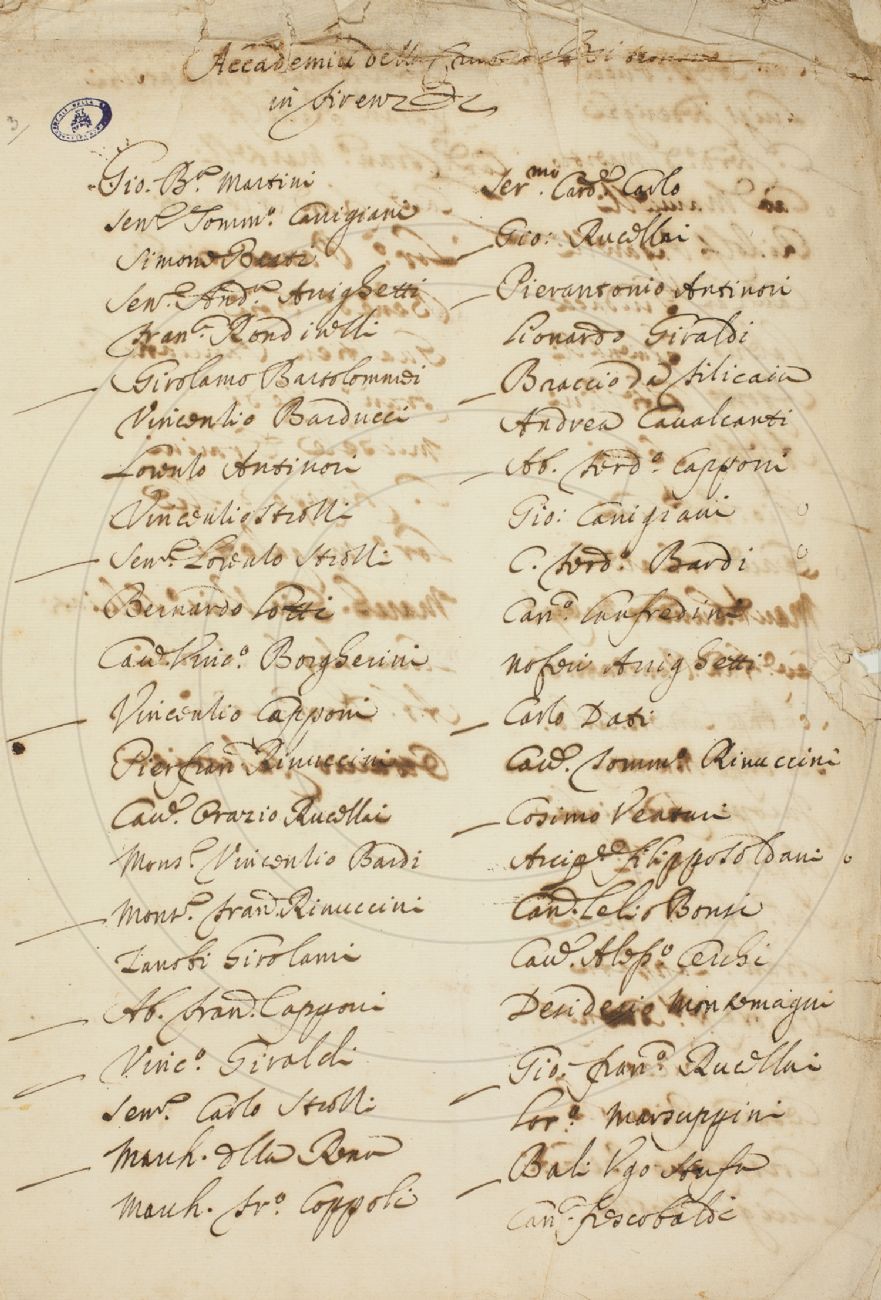 Accademia della
in Firenze
3
Gio: B.a Martini
Sen.e Tomm.o Canigiani
Simone Berti
Sen.e And.a Arrighetti
Fran.o Rondinelli
Girolamo Bartolommei
Vincenzio Barducci
Lorenzo Antinori
Vincenzio Strozzi
Sen.e Lorenzo Strozzi
Bernardo
Cav.e Vinc.o Borgherini
Vincenzio Capponi
Pierfran.o Rinuccini
Cav.e Orazio Rucellai
Mons.e Vincenzio Bardi
Mons.e Fran.o Rinuccini
Zanobi Girolami
Ab. Fran.o Capponi
Vinc.o Giraldi
Sen.e Carlo Strozzi
March. della Rena
March. Fr.o Coppoli
Ser.mo Card.e Carlo
Gio: Rucellai
Pierantonio Antinori
Lionardo Giraldi
Braccio da Filicaia
Andrea Cavalcanti
Ab. Ferd.o Capponi
Gio: Canigiani
C. Ferd.o Bardi
Can.o Lanfredini
Noferi Arrighetti
Carlo Dati
Cav.e Tomm.o Rinuccini
Cosimo Venturi
Filippo Soldani
Lelio Bonsi
Cav.e Aless.o Cerchi
Desiderio Montemagni
Gio: Fran.o Rucellai
Lor.o Marsuppini
Bali Ugo Stufa
Can.o Frescobaldi